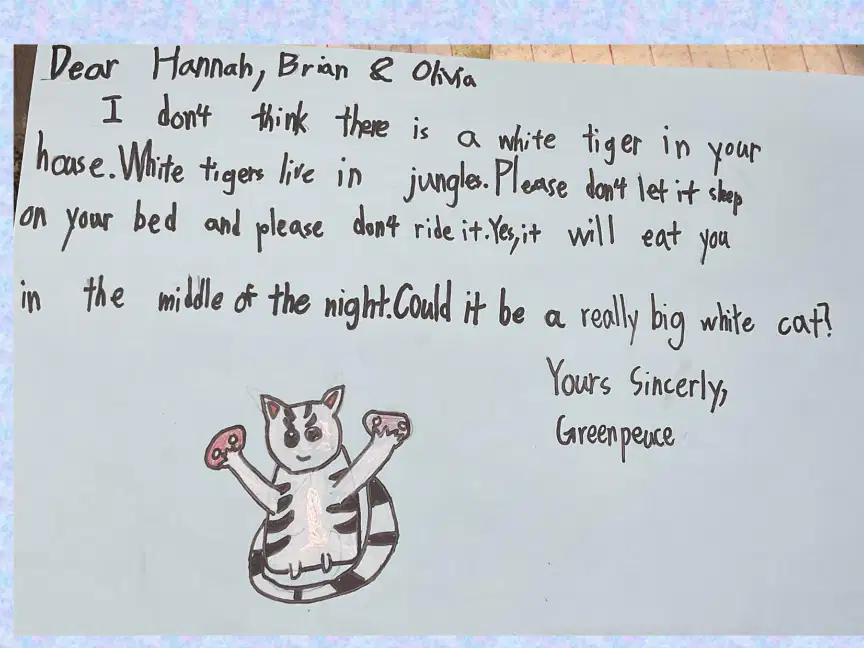 Dear Hannah, Brian & Olivia
I don't think there is a white tiger in your
house. White tigers live in jungles. Please don't let it sleep
on your bed and please don't ride it. Yes, it will eat you
in the middle of the night. Could it be a really big white cat?
Yours Sincerly,
Greenpeace